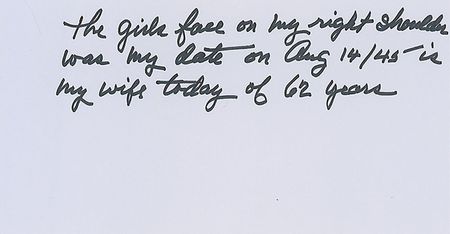 The girls face on my right shoulder
was my date on Aug 14/45 is
my wife today of 62 years